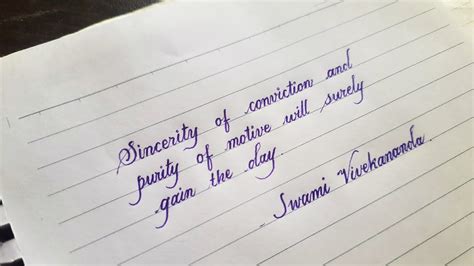 Sincerity of conviction and
purity of motive will surely
gain the day.
Swami Vivekananda.